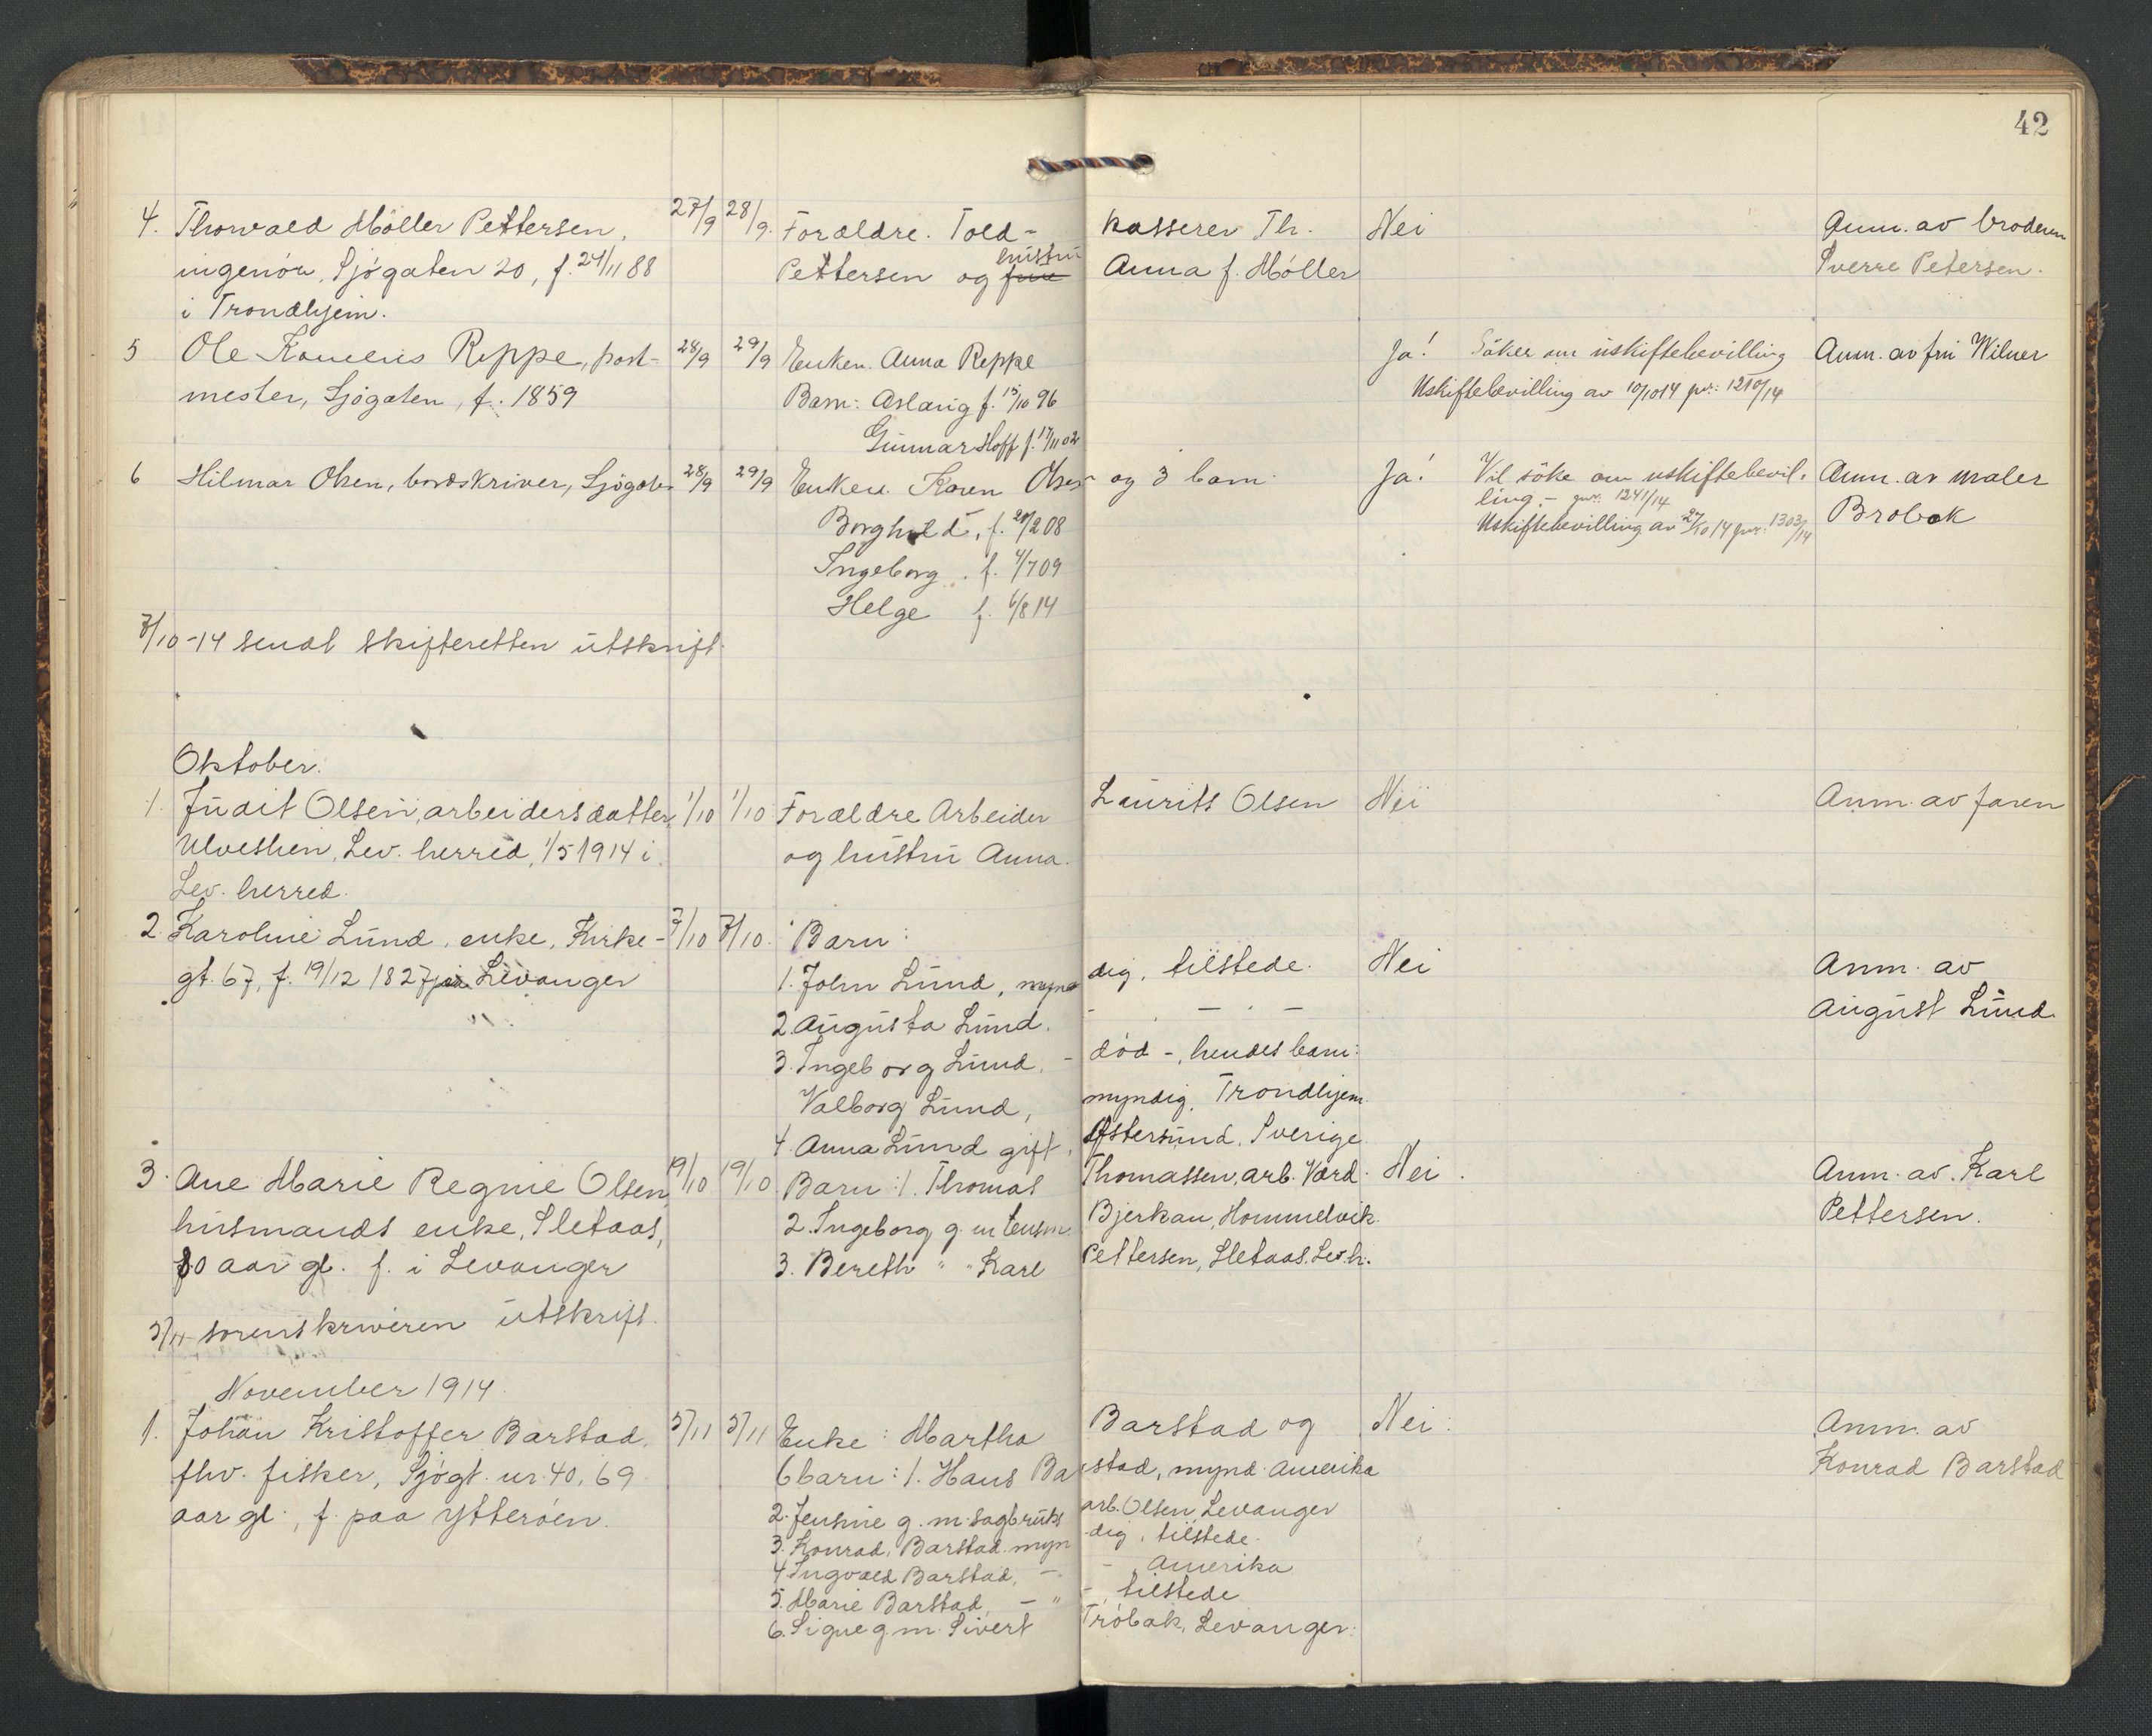 42
4. Thorvald Möller Pettersen, 27/9 28/9. Forældre. Told- kasserer Th. Nei Anm. av broderen
ingeniör, Sjögaten 20, f. 24/11 88 Pettersen og frue hustru Anna f. Möller Sverre Petersen.
i Trondhjem.
5 Ole Kornelius Reppe, post- 28/9 29/9 Enken Anna Reppe Ja! Söker om uskiftebevilling Anm. av frú Wilner
mester, Sjögaten, f. 1859 Barn: Aslaug f. 15/10 96 Uskiftebevilling av 10/10 14 jnr: 1210/14
Gunnar Hoff f. 17/11 02
6 Hilmar Olsen, bordskriver, Sjögaten 28/9 29/9 Enken Karen Olsen og 3 barn. Ja! Vil söke om uskiftebevil- Anm. av maler
ling. - jnr: 1241/14 Brobak
Borghild, f. 20/2 08 Uskiftebevilling av 27/10 14 jnr: 1303/14
Ingeborg . f. 4/7 09
Helge f. 6/8 14
8/10-14 sendt skifteretten utskrift.
Oktober.
1. Judit Olsen, arbeidersdatter, 1/10 1/10 Forældre Arbeider Laurits Olsen Nei Anm. av faren
Ulveshien, Lev. herred, 1/5 1914 i og hustru Anna.
Lev. herred.
2. Karoline Lund, enke, Kirke- 7/10 8/10. Barn:
gt. 67, f. 19/12 1827 paa Levanger 1. John Lund, myndig, tilstede. Nei Anm. av
2 Augusta Lund. - - - August Lund
3. Ingeborg Lund, - död -, hendes barn:
Valborg Lund, myndig, Trondhjem.
4 Anna Lund gift, Østersund, Sverige
3. Ane Marie Regine Olsen, 19/10 19/10 Barn: 1. Thomas Thomassen, arb. Værd. Nei. Anm. av. Karl
husmands enke, Sletaas, 2. Ingeborg g. m Bjerkan, Hommelvik. Pettersen.
80 aar gl. f. i Levanger 3. Bereth " " Karl Pettersen, Sletaas, Lev. h.
5/11 sorenskriveren utskrift.
November 1914.
1. Johan Kristoffer Barstad, 5/11 5/11 Enke: Martha Barstad og Nei: Anm. av
fhv. fisker, Sjögt. nr. 40, 69 6 barn: 1. Hans Barstad, mynd. Amerika Konrad Barstad
aar gl., f. paa Ytteröen. 2. Jensine g. m. sagbruks arb. Olsen, Levanger
3. Konrad, Barstad. myndig, tilstede.
4 Ingvald Barstad, - - Amerika
5. Marie Barstad, - " - tilstede
6. Signe g. m. Sivert Tröbak, Levanger.